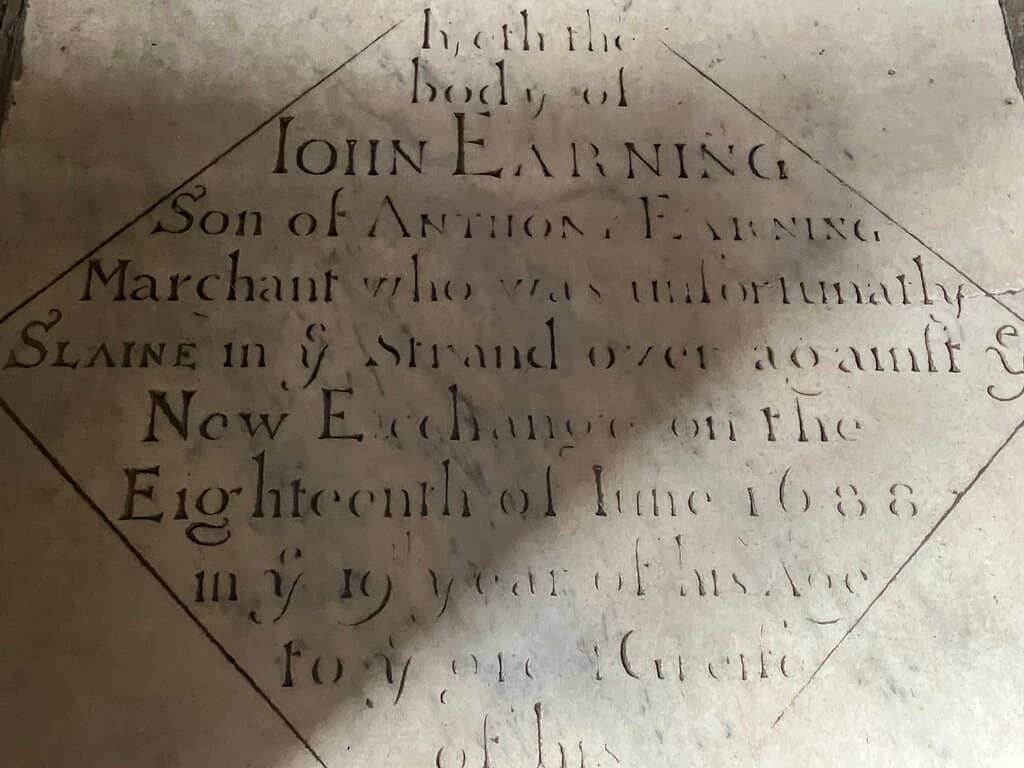 lyeth the
body of
IOHN EARNING
Son of ANTHONY EARNING
Marchant who was unfortunatly
SLAINE in yͤ Strand over against yͤ
New Exchange on the
Eighteenth of Iune 1688
in yͤ 19 year of his Age
to yͤ great Greife
of his